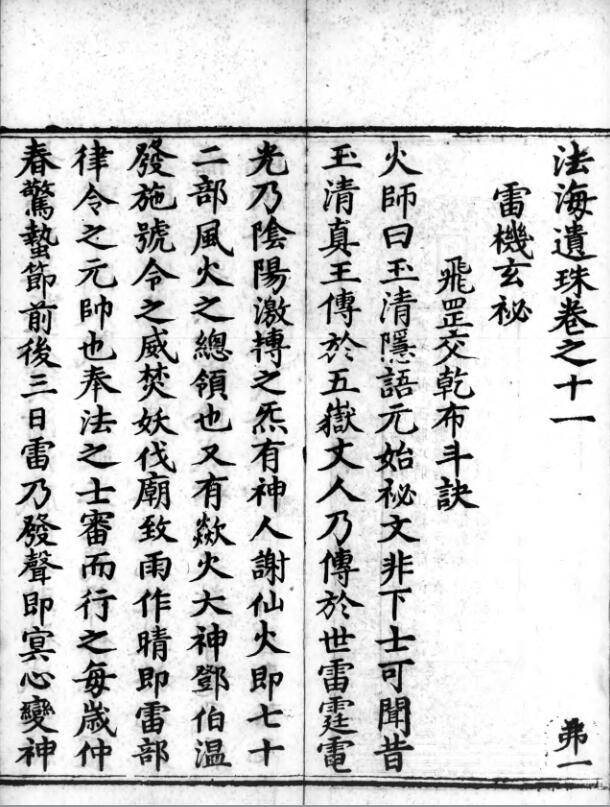 法海遺珠卷之十一
弗一
雷機玄祕
飛罡交乾布斗訣
火師曰玉清隱語元始祕文非下士可聞昔
玉清真王傳於五嶽丈人乃傳於世雷霆電
光乃陰陽激摶之炁有神人謝仙火即七十
二部風火之總領也又有歘火大神鄧伯温
發施號令之威焚妖伐廟致雨作晴即雷部
律令之元帥也奉法之士審而行之每歲仲
春驚蟄節前後三日雷乃發聲即冥心變神